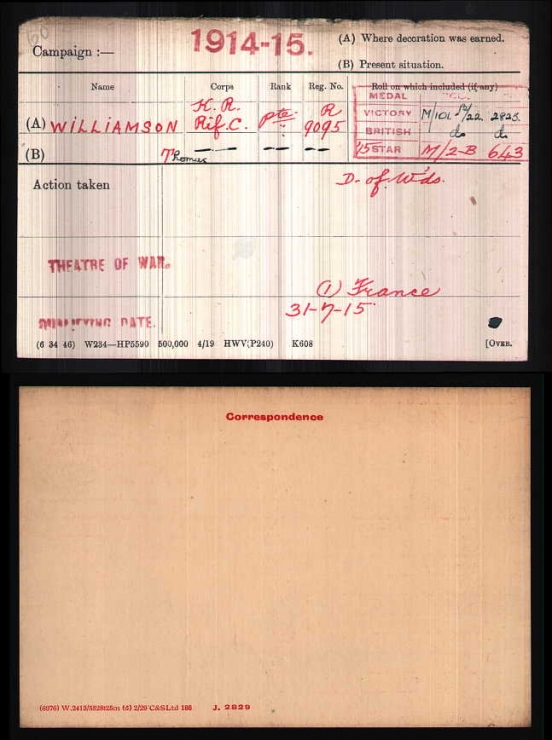 Campaign :—
1914-15.
(A) Where decoration was earned.
(B) Present situation.
Name Corps Rank Reg. No. Roll on which included (if any)
MEDAL
K. R.
(A) WILLIAMSON Rif. C. Pte R 9095
VICTORY M/101 2823.
BRITISH do do
(B) Thomas — — — —
15 STAR M/2-B 643
Action taken
D. of Wds.
THEATRE OF WAR.
(1) France
QUALIFYING DATE.
31-7-15
(6 34 46) W234—HP5590 500,000 4/19 HWV(P240) K608 [OVER.
Correspondence
J. 2829